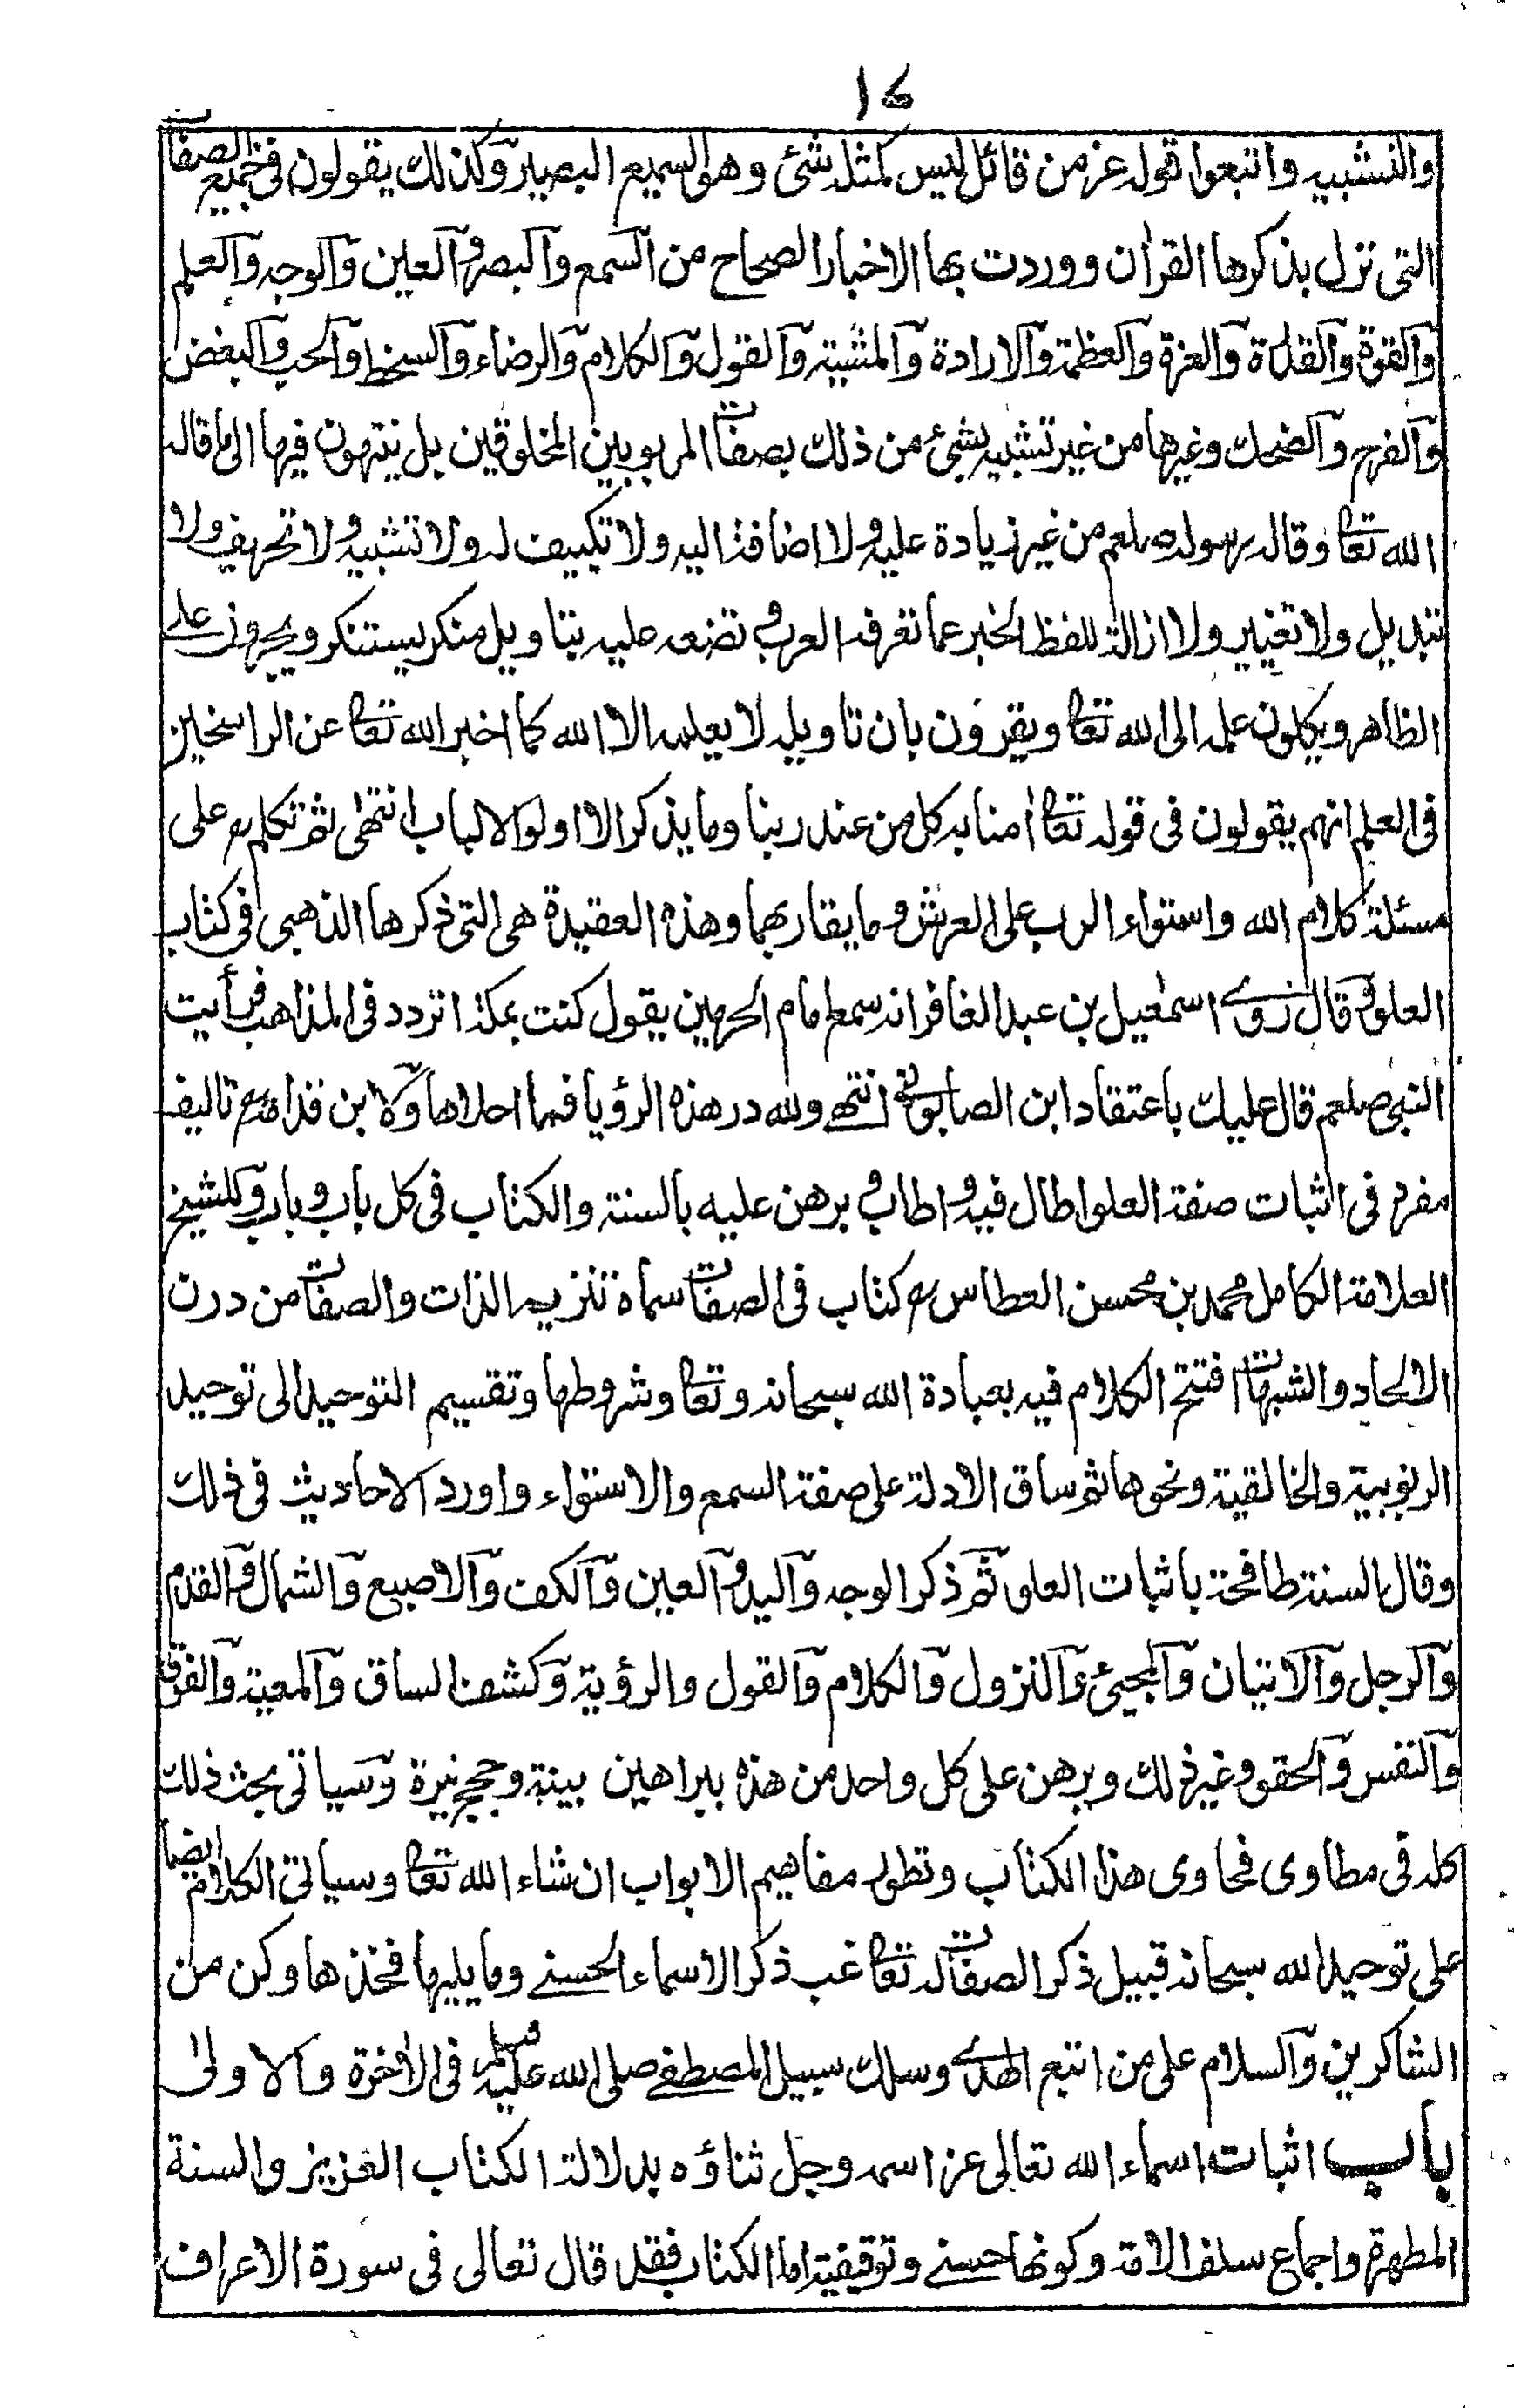 ١٤
والتشبيه واتبعوا قوله عز من قائل ليس كمثله شئ وهو السميع البصير وكذلك يقولون فى جميع الصفات
التى نزل بذكرها القرآن ووردت بها الاخبار الصحاح من السمع والبصر والعين والوجه والعلم
والقوة والقدرة والعزة والعظمة والارادة والمشية والقول والكلام والرضاء والسخط والحب والبغض
والفرح والضحك وغيرها من غير تشبيه بشئ من ذلك بصفات المربوبين المخلوقين بل ينتهون فيها الى ما قاله
الله تعا وقاله رسوله صلعم من غير زيادة عليه ولا اضافة اليه ولا تكييف له ولا تشبيه ولا تحريف ولا
تبديل ولا تغيير ولا ازالة للفظ الخبر عما تعرفه العرب وتضعه عليه بتاويل منكر يستنكر ويجرونه على
الظاهر ويكلون علمه الى الله تعا ويقرون بان تاويله لا يعلمه الا الله كما اخبر الله تعا عن الراسخين
فى العلم انهم يقولون فى قوله تعا اٰمنا به كل من عند ربنا وما يذكر الا اولوا الالباب انتهٰى ثم تكلم رح على
مسئلة كلام الله واستواء الرب على العرش وما يقاربهما وهذه العقيدة هى التى ذكرها الذهبى فى كتاب
العلو وقال روى اسمٰعيل بن عبد الغافر انه سمع امام الحرمين يقول كنت بمكة اتردد فى المذاهب فرأيت
النبى صلعم قال عليك باعتقاد ابن الصابونى انتهى ولله در هذه الرؤيا فما احلاها ولابن قدامة رح تاليف
مفرد فى اثبات صفة العلو اطال فيه واطاب وبرهن عليه بالسنة والكتاب فى كل باب وباب وللشيخ
العلامة الكامل محمد بن محسن العطاس رح كتاب فى الصفات سماه تنزيه الذات والصفات من درن
الالحاد والشبهات افتتح الكلام فيه بعبادة الله سبحانه وتعا وشروطها وتقسيم التوحيد الى توحيد
الربوبية والخالقية ونحوها ثم ساق الادلة على صفة السمع والاستواء واورد الاحاديث فى ذلك
وقال السنة طافحة باثبات العلو ثم ذكر الوجه واليد والعين والكف والاصبع والشمال والقدم
والرجل والاتيان والمجيئ والنزول والكلام والقول والرؤية وكشف الساق والمعية والفرق
والنفس والحقو وغير ذلك وبرهن على كل واحد من هذه ببراهين بينة وحجج نيرة وسياتى بحث ذلك
كله فى مطاوى فحاوى هذا الكتاب وتطول مفاهيم الابواب ان شاء الله تعا وسياتى الكلام ايضا
على توحيد الله سبحانه قبيل ذكر الصفات له تعا غب ذكر الاسماء الحسنى وما يليها فخذها وكن من
الشاكرين والسلام على من اتبع الهدى وسلك سبيل المصطفى صلى الله عليه وسلم فى الاٰخرة والاولىٰ
باب اثبات اسماء الله تعالى عز اسمه وجل ثناؤه بدلالة الكتاب العزيز والسنة
المطهرة واجماع سلف الامة وكونها حسنى وتوقيفية اما الكتاب فقد قال تعالى فى سورة الاعراف